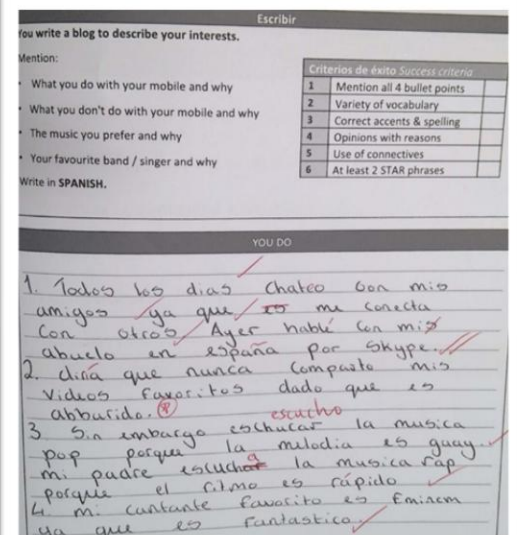 Escribir
You write a blog to describe your interests.
Mention:
• What you do with your mobile and why
• What you don't do with your mobile and why
• The music you prefer and why
• Your favourite band / singer and why
Write in SPANISH.
Criterios de éxito Success criteria
1 Mention all 4 bullet points
2 Variety of vocabulary
3 Correct accents & spelling
4 Opinions with reasons
5 Use of connectives
6 At least 2 STAR phrases
YOU DO
1. Todos los dias chateo con mis
amigos ya que es me conecta
con otros. Ayer hablé con mis
abuelo en españa por skype.
2. diria que nunca comparto mis
videos favoritos dado que es
abburido.
escucho
3. Sin embargo eschucar la musica
pop porque la melodia es guay.
mi padre escucha la musica rap
porque el ritmo es rápido
4. mi cantante favorito es Eminem
ya que es fantastico.